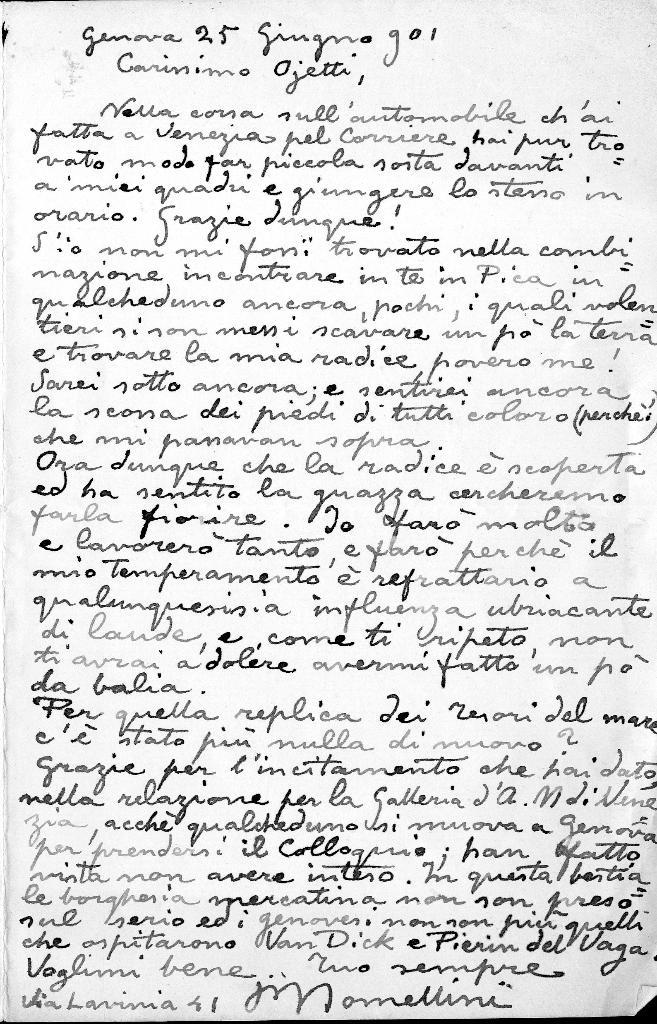 Genova 25 Giugno 901
Carissimo Ojetti,
Nella corsa sull'automobile ch'ai
fatta a Venezia pel Corriere hai pur tro=
vato modo far piccola sosta davanti
a' miei quadri e giungere lo stesso in
orario. Grazie dunque!
S'io non mi fossi trovato nella combi=
nazione incontrare in te in Pica in
qualcheduno ancora, pochi, i quali volen
tieri si son messi scavare un pò la terra
e trovare la mia radice, povero me!
Sarei sotto ancora; e sentirei ancora
la scossa dei piedi di tutti coloro (perchè!)
che mi passavan sopra.
Ora dunque che la radice è scoperta
ed ha sentito la guazza cercheremo
farla fiorire. Io farò molto
e lavorerò tanto, e farò perchè il
mio temperamento è refrattario a
qualunquesisia influenza ubriacante
di laude, e, come ti ripeto, non
ti avrai a dolere avermi fatto un pò
da balia.
Per quella replica dei Tesori del mare
c'è stato più nulla di nuovo?
Grazie per l'incitamento che hai dato,
nella relazione per la Galleria d'A. M di Vene
zia, acchè qualcheduno si muova a Genova
per prendersi il Colloquio; han fatto
vista non avere inteso. In questa bestia
le borghesia mercatina non son preso=
sul serio ed i genovesi non son più quelli
che ospitarono Van Dick e Pierin del Vaga.
Voglimi bene. Tuo sempre
Via Lavinia 41 Nomellini